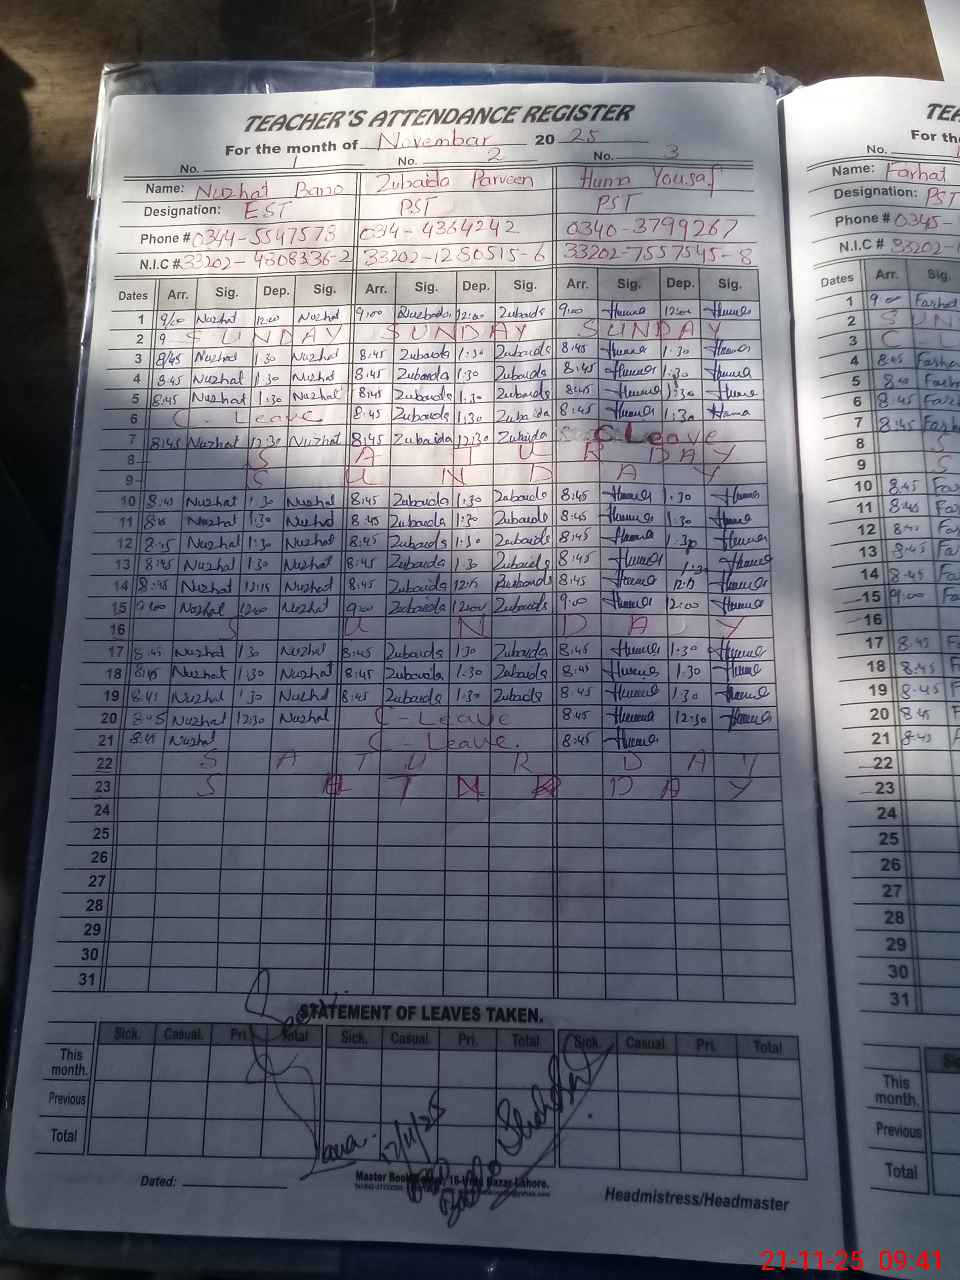 TEACHER'S ATTENDANCE REGISTER
For the month of November 2025
No. 1 No. 2 No. 3
Name: Nuzhat Bano Zubaida Parveen Huma Yousaf
Designation: EST PST PST
Phone # 0344-5547578 034-4364242 0340-3799267
N.I.C # 33202-4808336-2 33202-1280515-6 33202-7557545-8
Dates Arr. Sig. Dep. Sig. Arr. Sig. Dep. Sig. Arr. Sig. Dep. Sig.
1 9/00 Nuzhat 12:00 Nuzhat 9:00 Zubaida 12:00 Zubaida 9:00 Huma 12:00 Huma
2 9 SUNDAY SUNDAY SUNDAY
3 8/45 Nuzhat 1:30 Nuzhat 8:45 Zubaida 1:30 Zubaida 8:45 Huma 1:30 Huma
4 8:45 Nuzhat 1:30 Nuzhat 8:45 Zubaida 1:30 Zubaida 8:45 Huma 1:30 Huma
5 8:45 Nuzhat 1:30 Nuzhat 8:45 Zubaida 1:30 Zubaida 8:45 Huma 1:30 Huma
6 C. Leave 8:45 Zubaida 1:30 Zubaida 8:45 Huma 1:30 Huma
7 8:45 Nuzhat 12:30 Nuzhat 8:45 Zubaida 12:30 Zubaida C Leave
8 S A T U R D A Y
9 S U N D A Y
10 8:45 Nuzhat 1:30 Nuzhat 8:45 Zubaida 1:30 Zubaida 8:45 Huma 1:30 Huma
11 8:45 Nuzhat 1:30 Nuzhat 8:45 Zubaida 1:30 Zubaida 8:45 Huma 1:30 Huma
12 8:45 Nuzhat 1:30 Nuzhat 8:45 Zubaida 1:30 Zubaida 8:45 Huma 1:30 Huma
13 8:45 Nuzhat 1:30 Nuzhat 8:45 Zubaida 1:30 Zubaida 8:45 Huma 1:30 Huma
14 8:45 Nuzhat 12:15 Nuzhat 8:45 Zubaida 12:15 8:45 Huma 12:15 Huma
15 9:00 Nuzhat 12:00 Nuzhat 9:00 Zubaida 12:00 Zubaida 9:00 Huma 12:00 Huma
16 S U N D A Y
17 8:45 Nuzhat 1:30 Nuzhat 8:45 Zubaida 1:30 Zubaida 8:45 Huma 1:30 Huma
18 8:45 Nuzhat 1:30 Nuzhat 8:45 Zubaida 1:30 Zubaida 8:45 Huma 1:30 Huma
19 8:45 Nuzhat 1:30 Nuzhat 8:45 Zubaida 1:30 Zubaida 8:45 Huma 1:30 Huma
20 8:45 Nuzhat 12:30 Nuzhat C-Leave 8:45 Huma 12:30 Huma
21 8:45 Nuzhat C-Leave. 8:45 Huma
22 S A T U R D A Y
23 S D A Y
24
25
26
27
28
29
30
31
STATEMENT OF LEAVES TAKEN.
Sick. Casual. Pri. Total Sick. Casual. Pri. Total Sick. Casual Pri. Total
This month.
Previous
Total
17/11/25
Dated:
Headmistress/Headmaster
For the mon
No.
Name: Farhat
Designation: PST
Phone # 0345-
N.I.C # 33202-
Dates Arr. Sig.
1 9:00 Farhat
2 S U N
3 C L
4 8:45
5
6 8:45
7 8:45
8 S
9 S
10 8:45 Far
11 8:45 Far
12 Far
13 8:45 Far
14 8:45 Far
15 9:00
16
17 8:45
18 8:45
19 8:45
20 8:45
21 8:45
22
23
24
25
26
27
28
29
30
31
This month.
Previous
Total
21-11-25 09:41